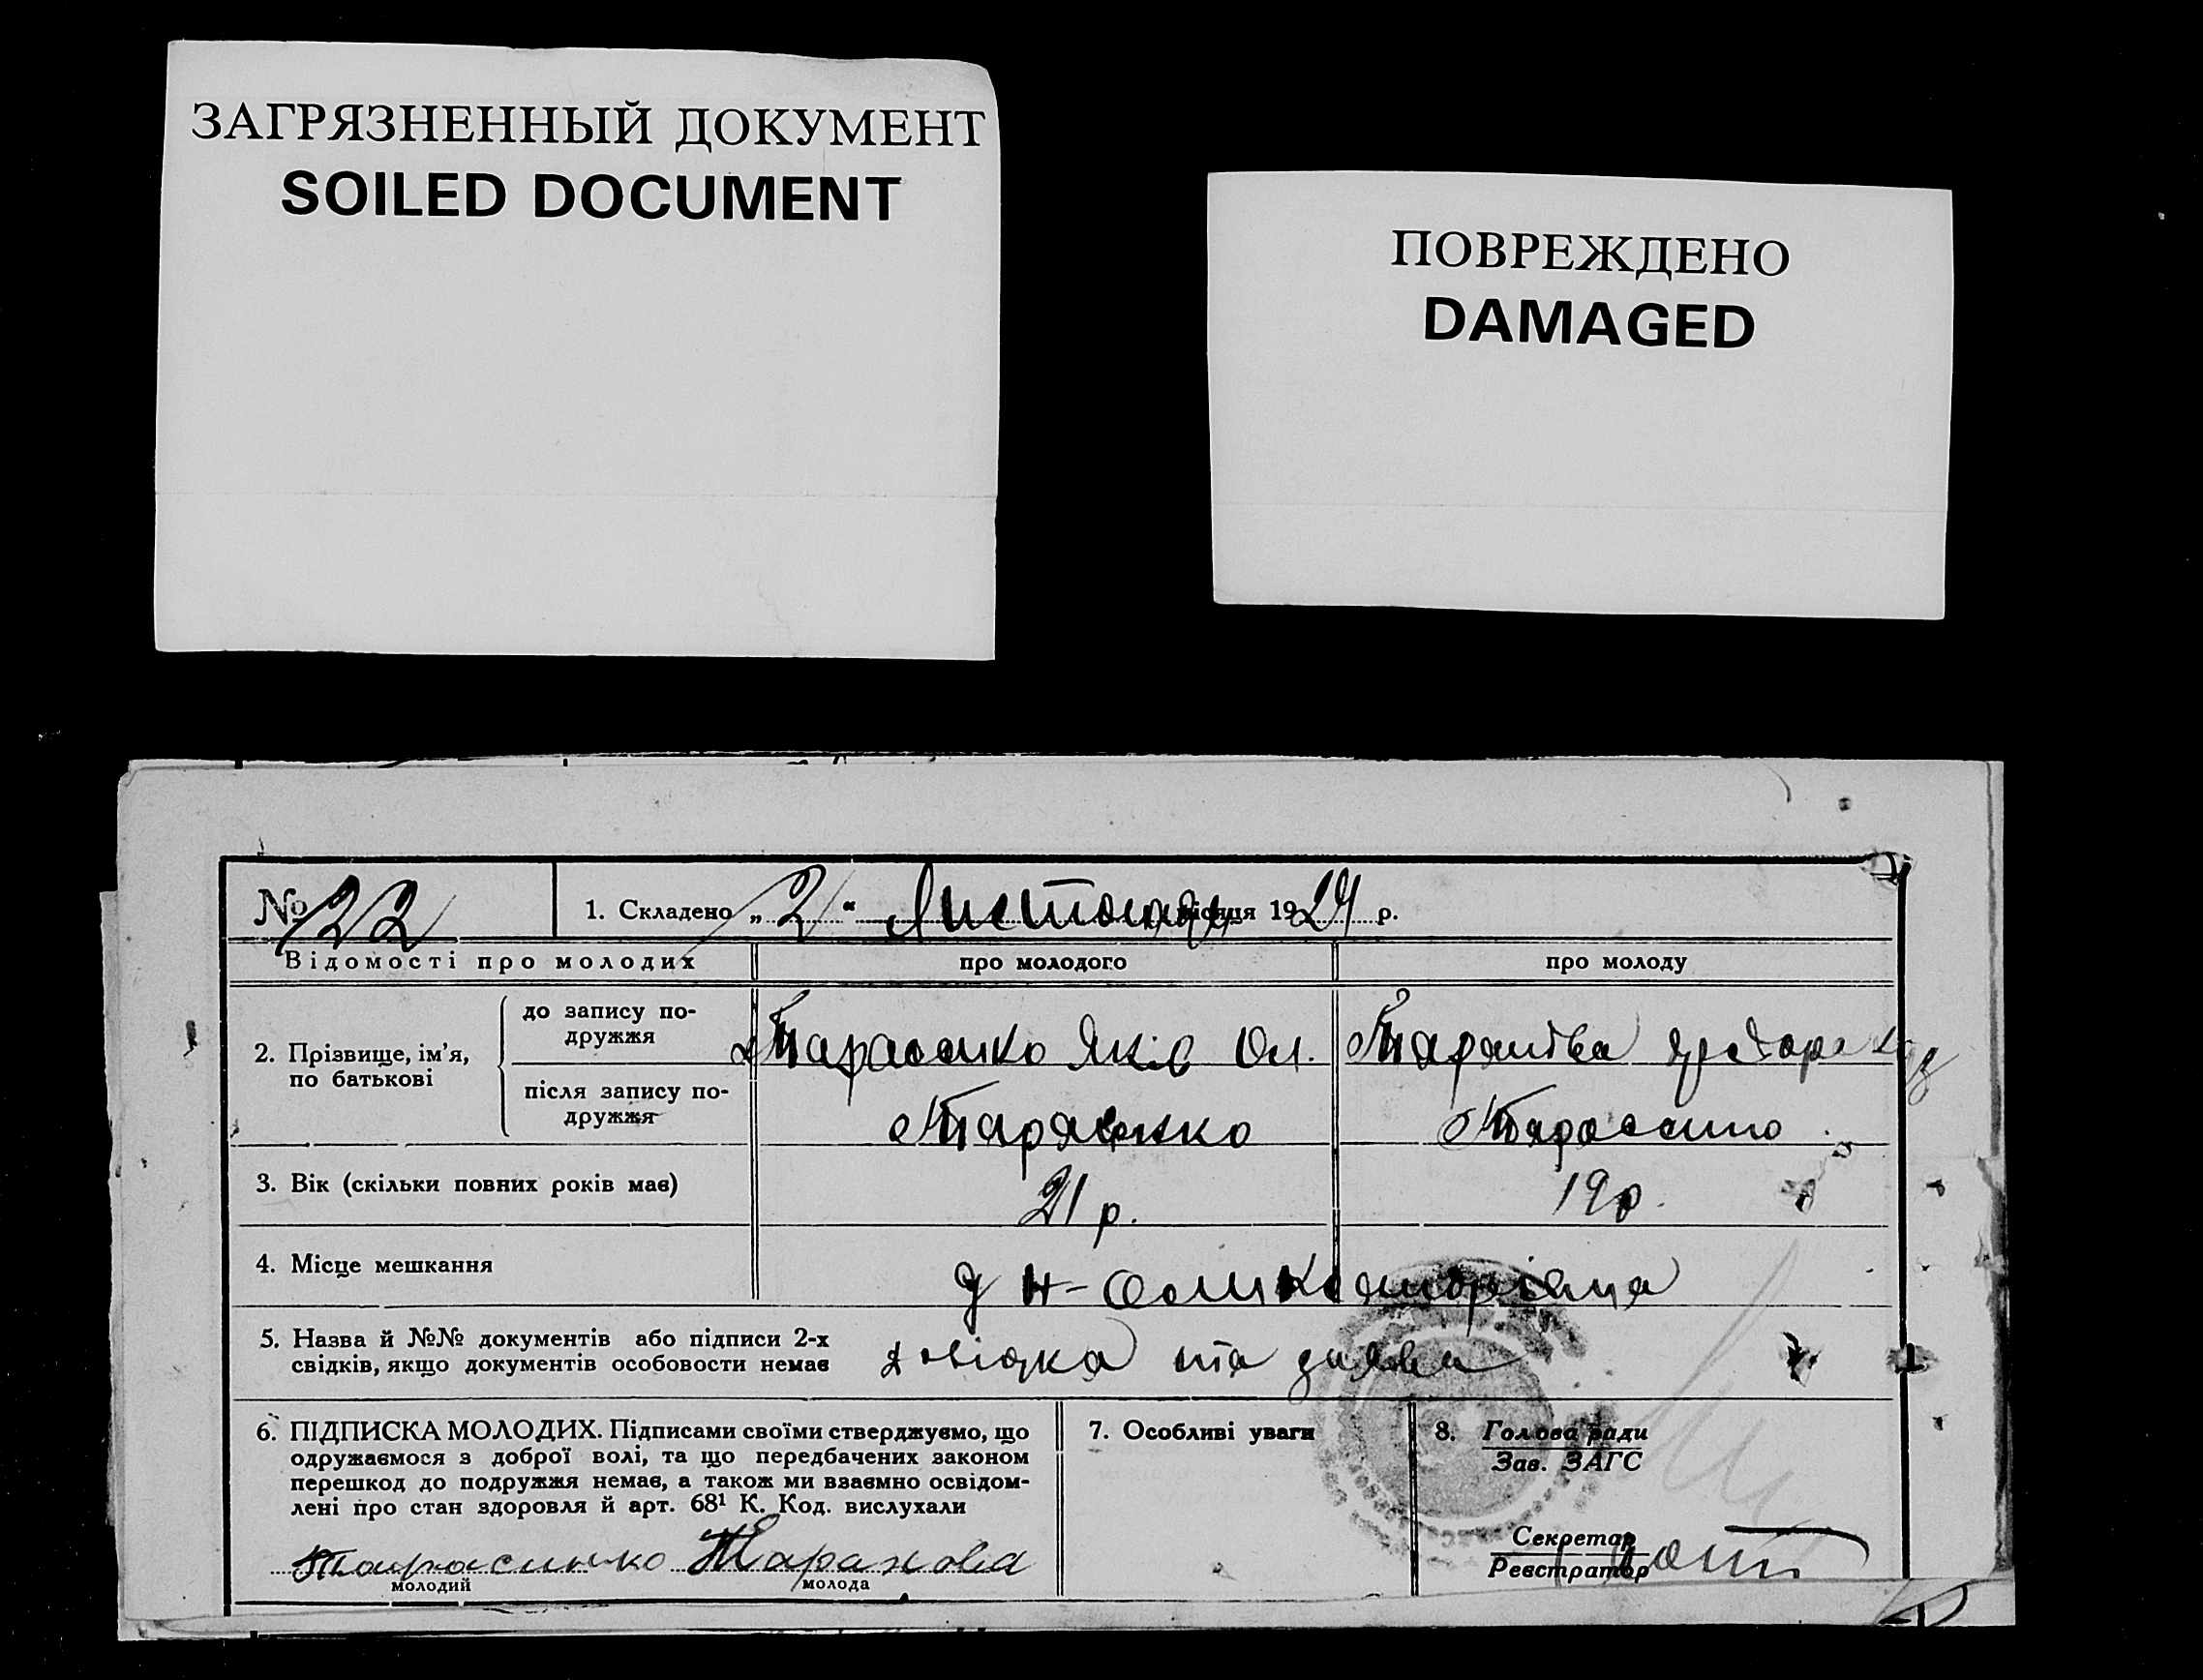 ЗАГРЯЗНЕННЫЙ ДОКУМЕНТ
SOILED DOCUMENT
ПОВРЕЖДЕНО
DAMAGED
№ 22
1. Складено „ 2 “ Листопада місяця 1929 р.
Відомості про молодих
про молодого
про молоду
2. Прізвище, ім'я, по батькові
до запису по-
дружжя
Тарасенко Яків Ол.
після запису по-
дружжя
Тарасенко
Тарасенко
3. Вік (скільки повних років має)
21 р.
19 р.
4. Місце мешкання
5. Назва й №№ документів або підписи 2-х
свідків, якщо документів особовости немає
довідка та заява
6. ПІДПИСКА МОЛОДИХ. Підписами своїми стверджуємо, що
одружаємося з доброї волі, та що передбачених законом
перешкод до подружжя немає, а також ми взаємно освідом-
лені про стан здоровля й арт. 68¹ К. Код. вислухали
Тарасинко Таранова
молодий
молода
7. Особливі уваги
8. Голова ради
Зав. ЗАГС
Секретар
Реєстратор